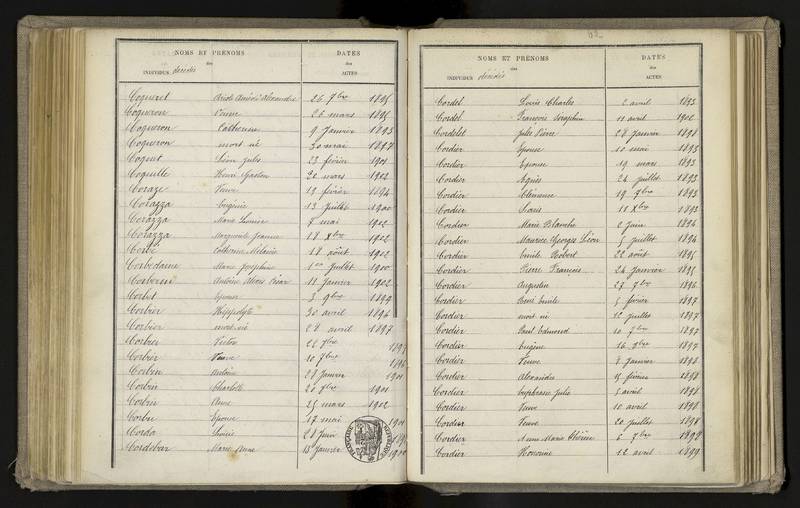 NOMS ET PRÉNOMS DATES
des des
INDIVIDUS décédés ACTES
Coqueret Aristide Amédée Alexandre 26 7bre 1895
Coqueron Veuve 26 mars 1895
Coqueron Catherine 9 Janvier 1893
Coqueron mort né 30 mai 1897
Coquet Léon Jules 23 février 1901
Coquille Henri Gaston 21 mars 1902
Coraze Veuve 19 février 1894
Corazza Eugénie 13 Juillet 1900
Corazza Marie Louise 7 mai 1902
Corazza Marguerite Jeanne 18 Xbre 1902
Corbé Catherine Mélanie 18 août 1902
Corbedaine Marie Joséphine 1er Juillet 1900
Corberon 11 Janvier 1902
Corbet Epouse 3 9bre 1899
Corbier Hippolyte 30 avril 1896
Corbier mort né 24 avril 1897
Corbin Victor 22 7bre
Corbin Veuve 10 7bre
Corbin Antoine 28 Janvier 1901
Corbin Charlotte 20 7bre 1901
Corbin Anne 25 mars 1902
Corbu Epouse 17 mai 1901
Corda Louise 28 Juin
Cordebar Marie Anne 15 Janvier 1900
NOMS ET PRÉNOMS DATES
des des
INDIVIDUS décédés ACTES
Cordel Louis Charles 2 avril 1893
Cordel François Séraphin 11 avril 1902
Cordelet Jules Pierre 28 Janvier 1898
Cordier Epouse 10 mai 1893
Cordier Epouse 19 mars 1893
Cordier Agnès 24 Juillet 1893
Cordier Clémence 19 7bre 1893
Cordier Louis 11 Xbre 1893
Cordier Marie Blanche 2 Juin 1894
Cordier Maurice Georges Léon 5 Juillet 1894
Cordier Emile Robert 22 août 1895
Cordier Pierre François 24 Janvier 1895
Cordier Augustin 27 7bre 1896
Cordier René Emile 5 février 1897
Cordier mort né 12 Juillet 1897
Cordier Paul Edmond 10 7bre 1897
Cordier Eugène 16 9bre 1897
Cordier Veuve 8 Janvier 1898
Cordier Alexandre 15 février 1898
Cordier Euphrasie Julie 5 avril 1898
Cordier Veuve 10 avril 1898
Cordier Veuve 20 Juillet 1898
Cordier Anne Marie Thérèse 5 7bre 1898
Cordier Honorine 12 avril 1899